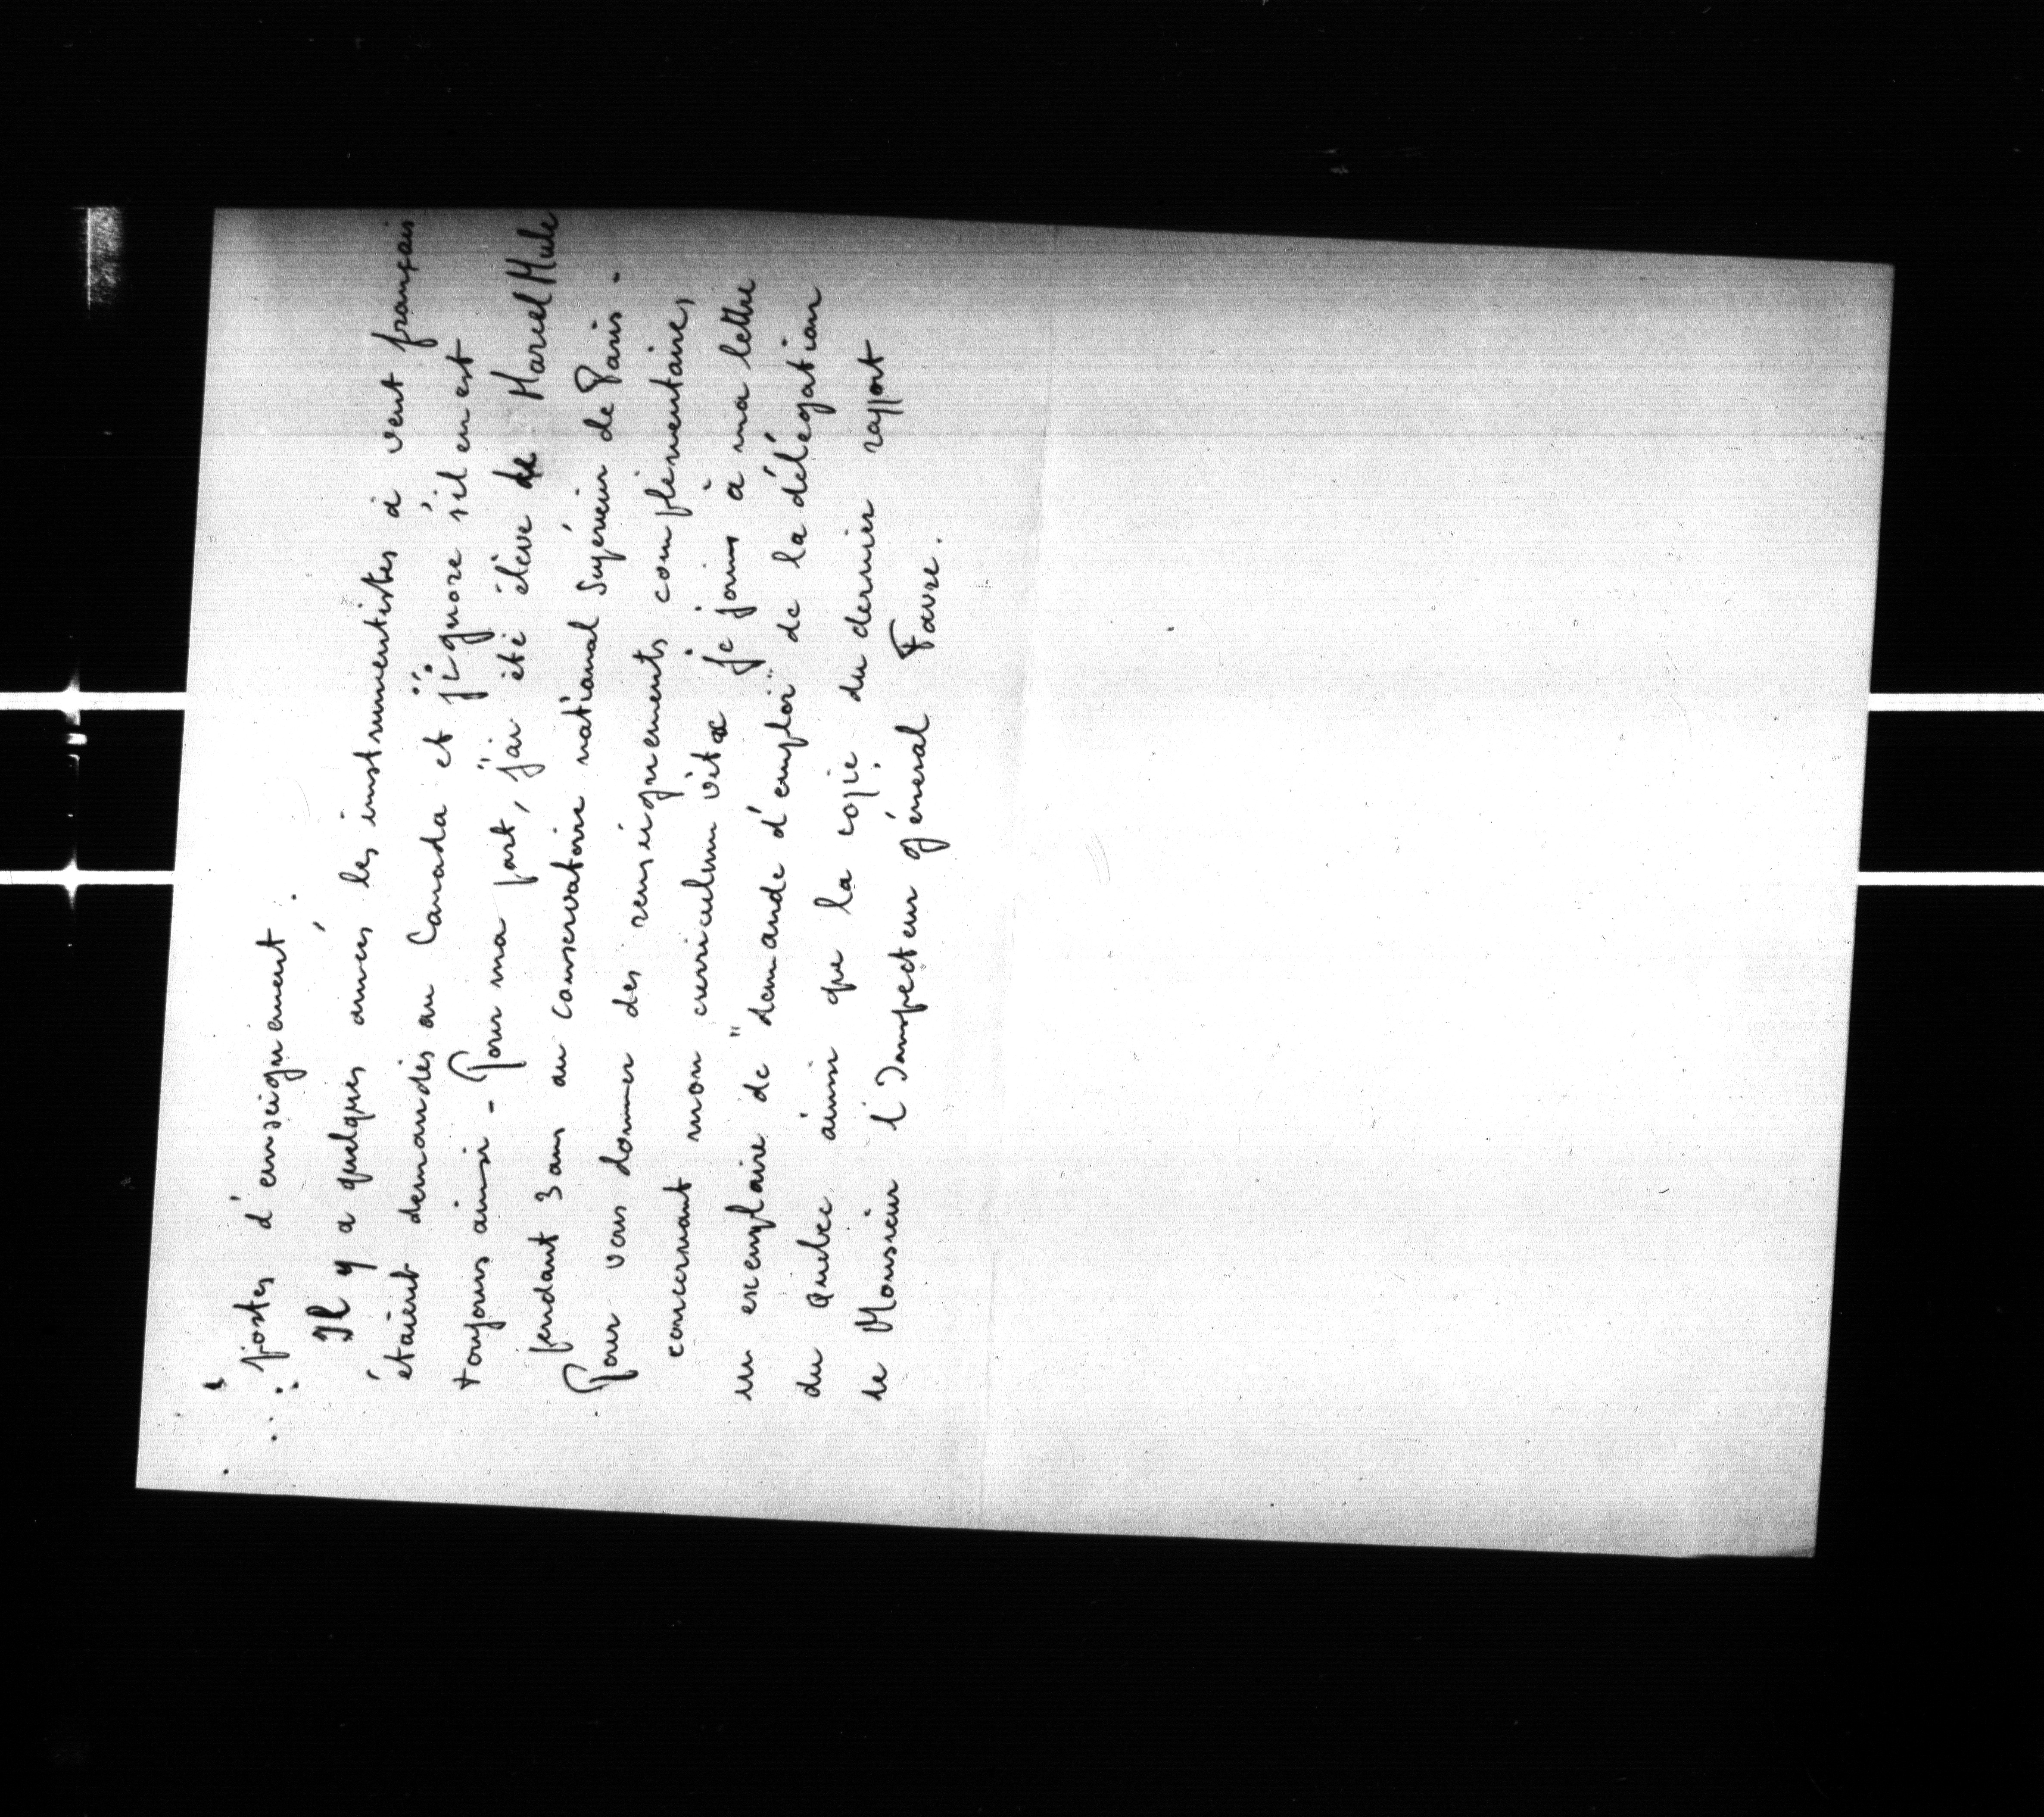 postes d'enseignement.
Il y a quelques années les instrumentistes à vent français
étaient demandés au Canada et j'ignore s'il en est
toujours ainsi - Pour ma part, j'ai été élève de Marcel Mule
pendant 3 ans au conservatoire national Supérieur de Paris -
Pour vous donner des renseignements complémentaires
concernant mon curriculum vitæ je joins à ma lettre
un exemplaire de "demande d'emploi" de la délégation
du Québec ainsi que la copie du dernier rapport
de Monsieur l'Inspecteur général Favre.